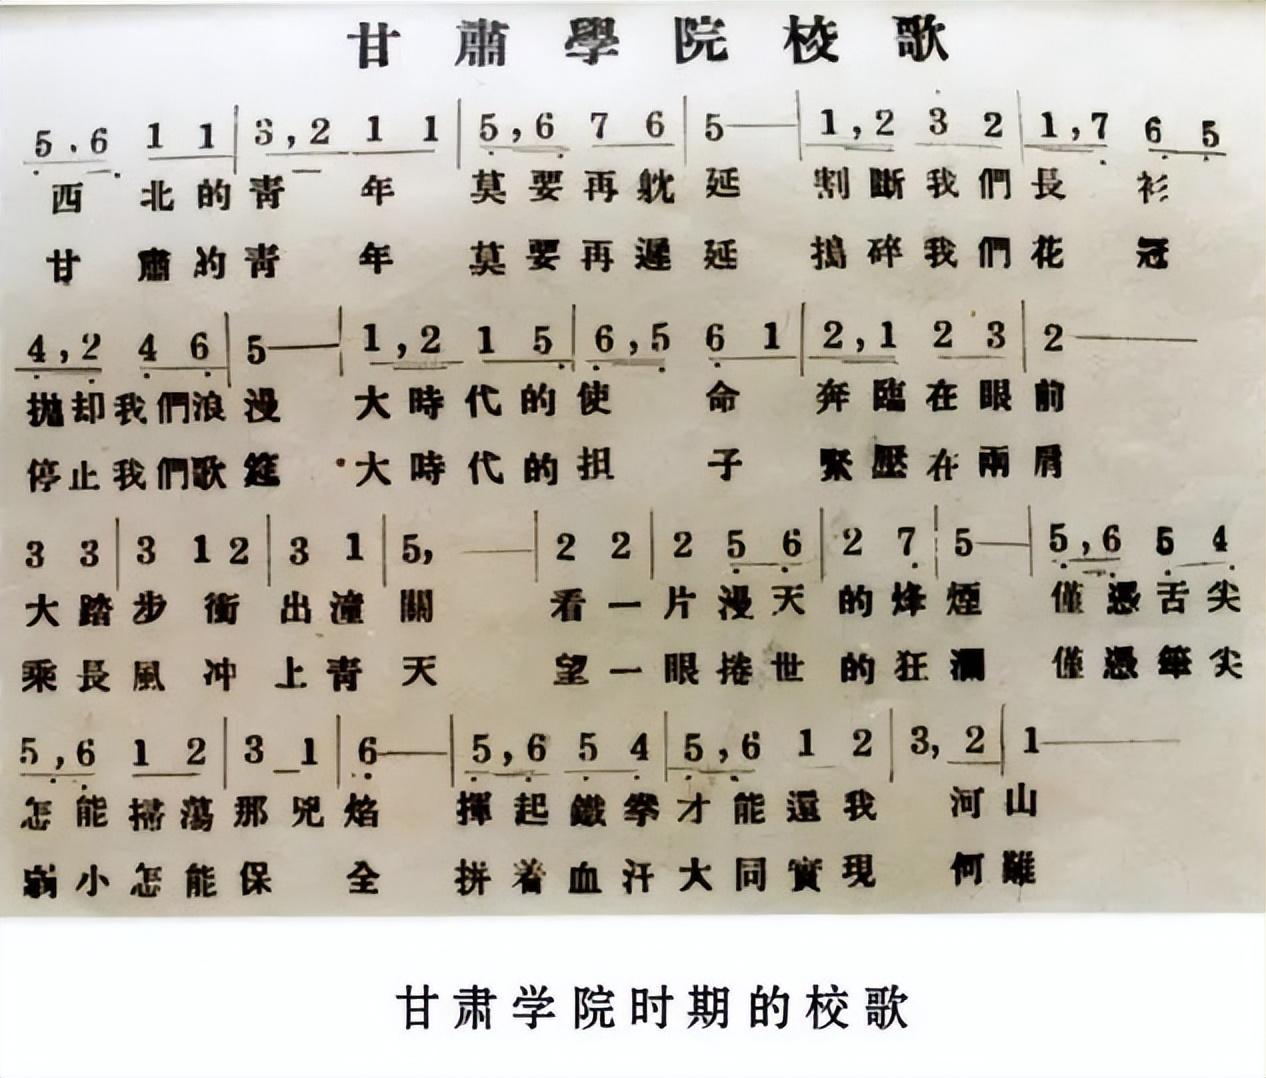 甘肅學院校歌
5 . 6 1 1 | 3 , 2 1 1 | 5 , 6 7 6 | 5 — | 1 , 2 3 2 | 1 , 7 6 5
西北的青年 莫要再躭延 割斷我們長衫
甘肅的青年 莫要再遲延 搗碎我們花冠
4 , 2 4 6 | 5 — | 1 , 2 1 5 | 6 , 5 6 1 | 2 , 1 2 3 | 2 —
拋却我們浪漫 大時代的使命 奔臨在眼前
停止我們歌筵 大時代的担子 緊壓在兩肩
3 3 | 3 1 2 | 3 1 | 5 , — | 2 2 | 2 5 6 | 2 7 | 5 — | 5 , 6 5 4
大踏步衝出潼關 看一片漫天的烽煙 僅憑舌尖
乘長風冲上青天 望一眼捲世的狂瀾 僅憑筆尖
5 , 6 1 2 | 3 1 | 6 — | 5 , 6 5 4 | 5 , 6 1 2 | 3 , 2 | 1 —
怎能掃蕩那兇焰 揮起鐵拳才能還我河山
小怎能保全 拼着血汗大同實現何難
甘肃学院时期的校歌